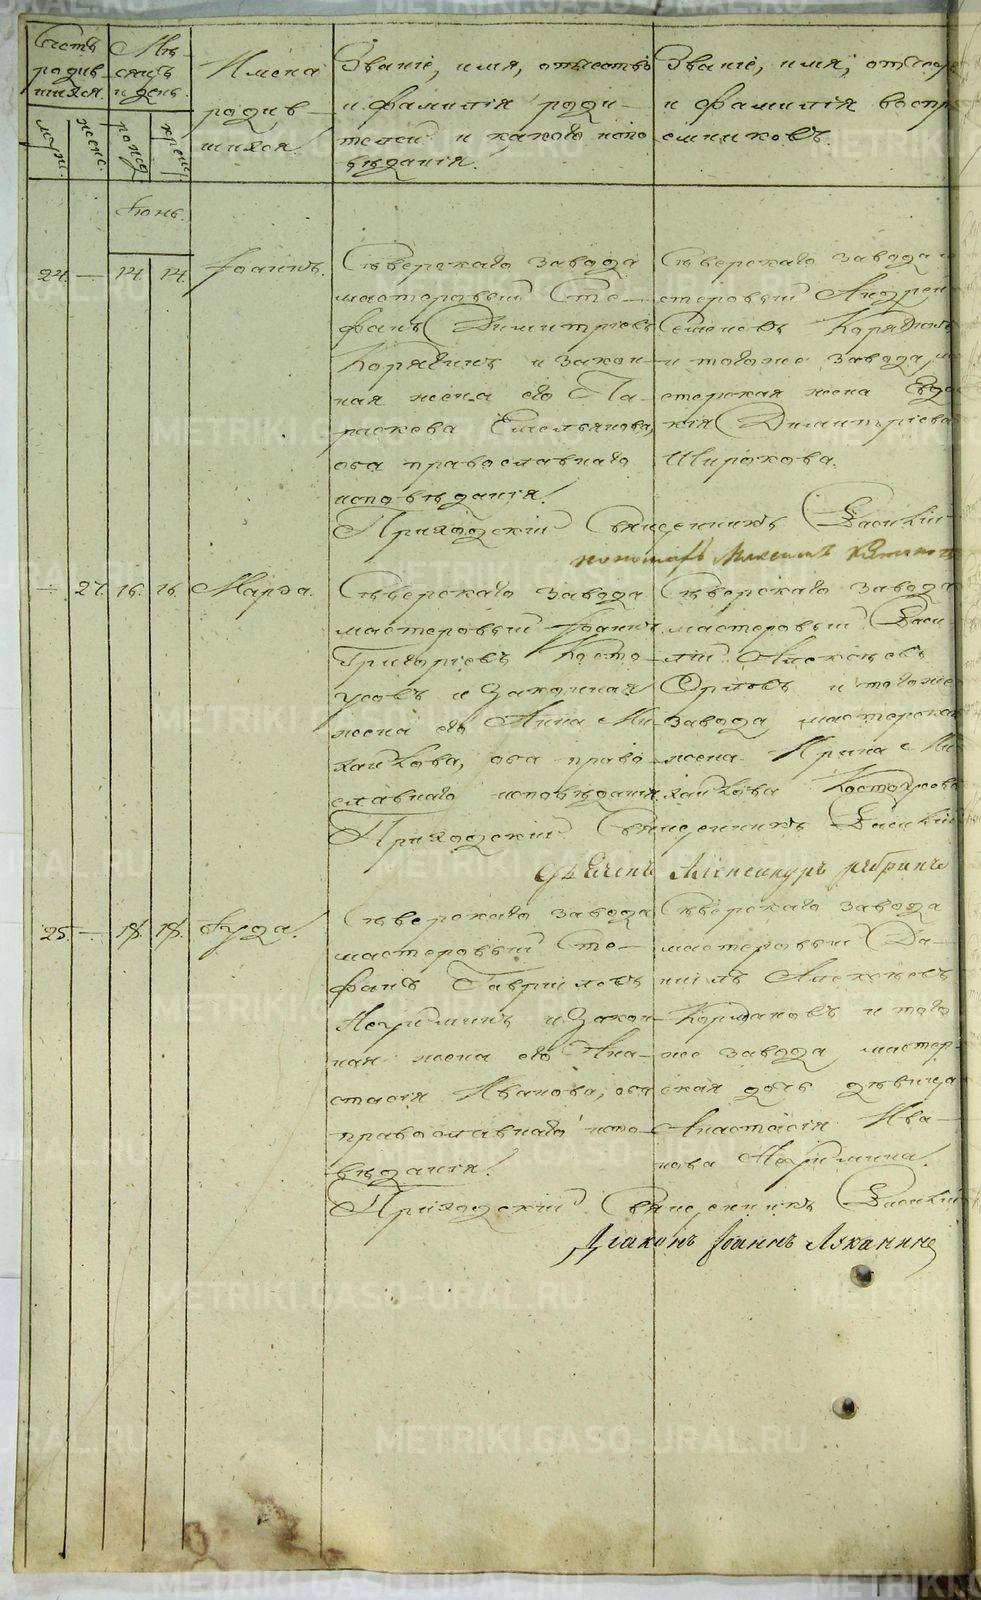 Счетъ родив-
шихся.
муж.
женс.
Мѣ-
сяцъ
и день.
рожд.
крещ.
Имена
родив-
шихся.
Званіе, имя, отчество
и фамилія роди-
телей и какого испо
вѣданія.
Званіе, имя, отчест
и фамилія воспрі
емниковъ.
Іюнь.
24. — 14. 14. Іоаннъ.
Сѣверскаго завода
мастеровый Сте-
фанъ Димитріевъ
и закон-
ная жена его Па-
раскева Емельянова,
оба православнаго
исповѣданія.
Сѣверскаго завода м
стеровый Андрей
Семеновъ
и тогоже завода, ма
стерская жена Евдо
кія Димитріева
Широкова.
Приходскій Священникъ Василій
пономарь Максимъ
— 27. 16. 16. Марѳа.
Сѣверскаго завода
мастеровый Іоаннъ
Григорьевъ Косто-
усовъ и законная
жена его Анна Ми-
хайлова, оба право-
славнаго исповѣданія.
Сѣверскаго завода
мастеровый Васи-
лій Алексѣевъ
Орловъ и тогоже
завода, мастерская
жена Ирина Ми-
хайлова Костоусова
Приходскій Священникъ Василій
Дьячекъ Александръ
25. — 18. 18. Іуда.
Сѣверскаго завода
мастеровый Сте-
фанъ Гавріиловъ
и закон-
ная жена его Ана-
стасія Иванова, оба
православнаго испо-
вѣданія.
Сѣверскаго завода
мастеровый Да-
ніилъ Алексѣевъ
и того
же завода, мастер-
ская дочь дѣвица
Анастасія Ива-
нова
Приходскій Священникъ Василій
Діаконъ Іоаннъ Луканинъ
METRIKI.GASO-URAL.RU